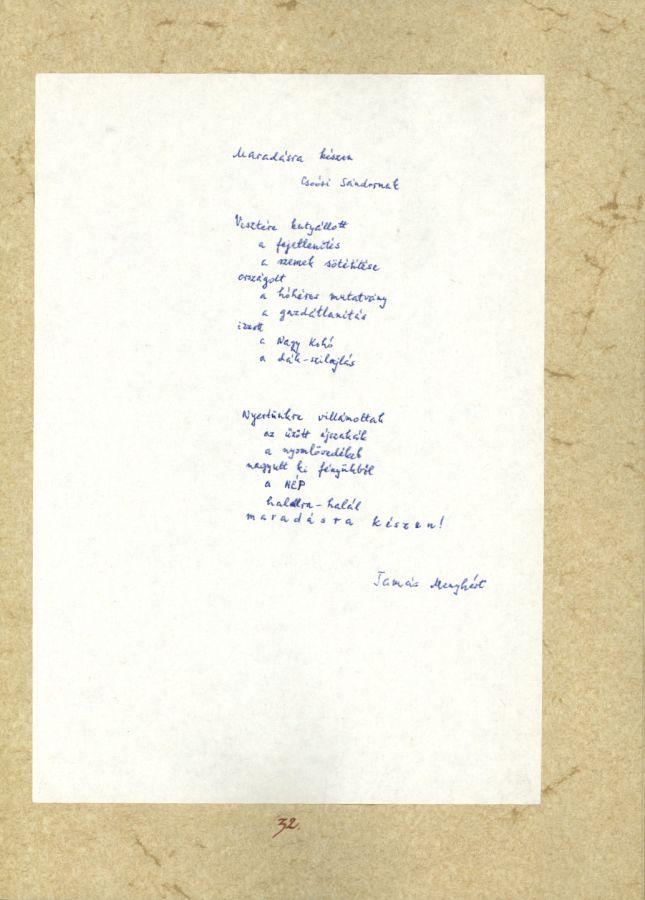 Maradásra készen
Csoóri Sándornak
Vesztére kutyállott
a fejetlenítés
a szemek sötétítése
országolt
a hóhéros mutatvány
a gazdátlanítás
izzott
a Nagy Kohó
a dák-szilajlás
Nyertünkre villámottak
az űzött éjszakák
a nyomlövedékek
nagyult ki fényükből
a NÉP
halálra-halál
maradásra készen!
Tamás Menyhért
32.